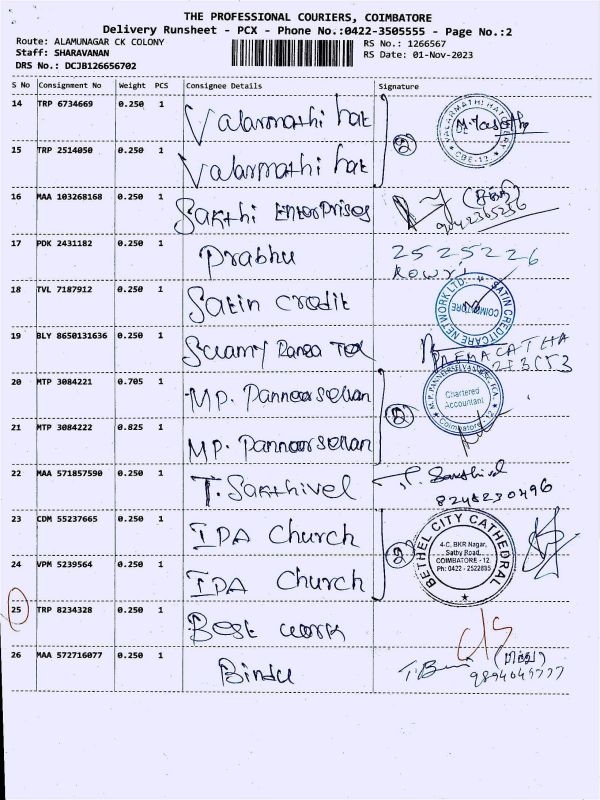 THE PROFESSIONAL COURIERS, COIMBATORE
Delivery Runsheet - PCX - Phone No.:0422-3505555 - Page No.:2
Route: ALAMUNAGAR CK COLONY
RS No.: 1266567
Staff: SHARAVANAN
RS Date: 01-Nov-2023
DRS No.: DCJB126656702
S No Consignment No Weight PCS Consignee Details Signature
14 TRP 6734669 0.250 1 Valarmathi hat
15 TRP 2514050 0.250 1 Valarmathi hat
2
VALARMATHI HATCHERY
CBE-12
16 MAA 103268168 0.250 1 Sakthi Enterprises
9042365256
17 PDK 2431182 0.250 1 Prabhu 2525226
Rowri
18 TVL 7187912 0.250 1 Satin credit
SATIN CREDITCARE NETWORK LTD.
COIMBATORE
19 BLY 8650131636 0.250 1 Swamy Ranga Tex
20 MTP 3084221 0.705 1 MP. Panneerselvan
21 MTP 3084222 0.825 1 MP. Panneerselvan
2
Chartered
Accountant
Coimbatore-12
22 MAA 571857590 0.250 1 T. Sakthivel T. Sakthivel
8248230496
23 CDM 55237665 0.250 1 IPA Church
24 VPM 5239564 0.250 1 IPA Church
2
BETHEL CITY CATHEDRAL
4-C, BKR Nagar,
Sathy Road,
COIMBATORE - 12
Ph: 0422 - 2522835
25 TRP 8234328 0.250 1 Best work C/S
26 MAA 572716077 0.250 1 Bindu
(பிந்து)
9894049777